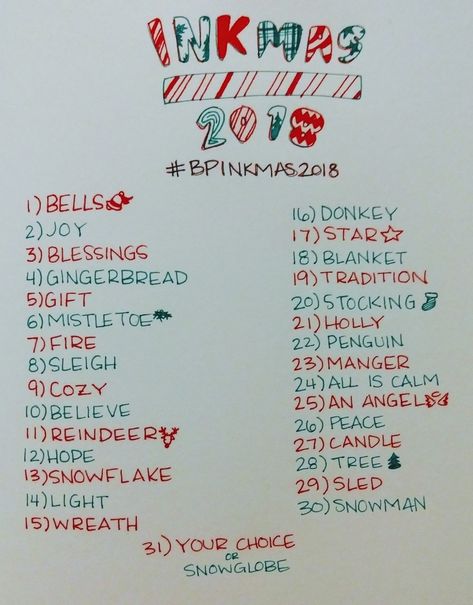 INKMAS
2018
#BPINKMAS2018
1) BELLS
2) JOY
3) BLESSINGS
4) GINGERBREAD
5) GIFT
6) MISTLETOE
7) FIRE
8) SLEIGH
9) COZY
10) BELIEVE
11) REINDEER
12) HOPE
13) SNOWFLAKE
14) LIGHT
15) WREATH
16) DONKEY
17) STAR
18) BLANKET
19) TRADITION
20) STOCKING
21) HOLLY
22) PENGUIN
23) MANGER
24) ALL IS CALM
25) AN ANGEL
26) PEACE
27) CANDLE
28) TREE
29) SLED
30) SNOWMAN
31) YOUR CHOICE
OR
SNOWGLOBE